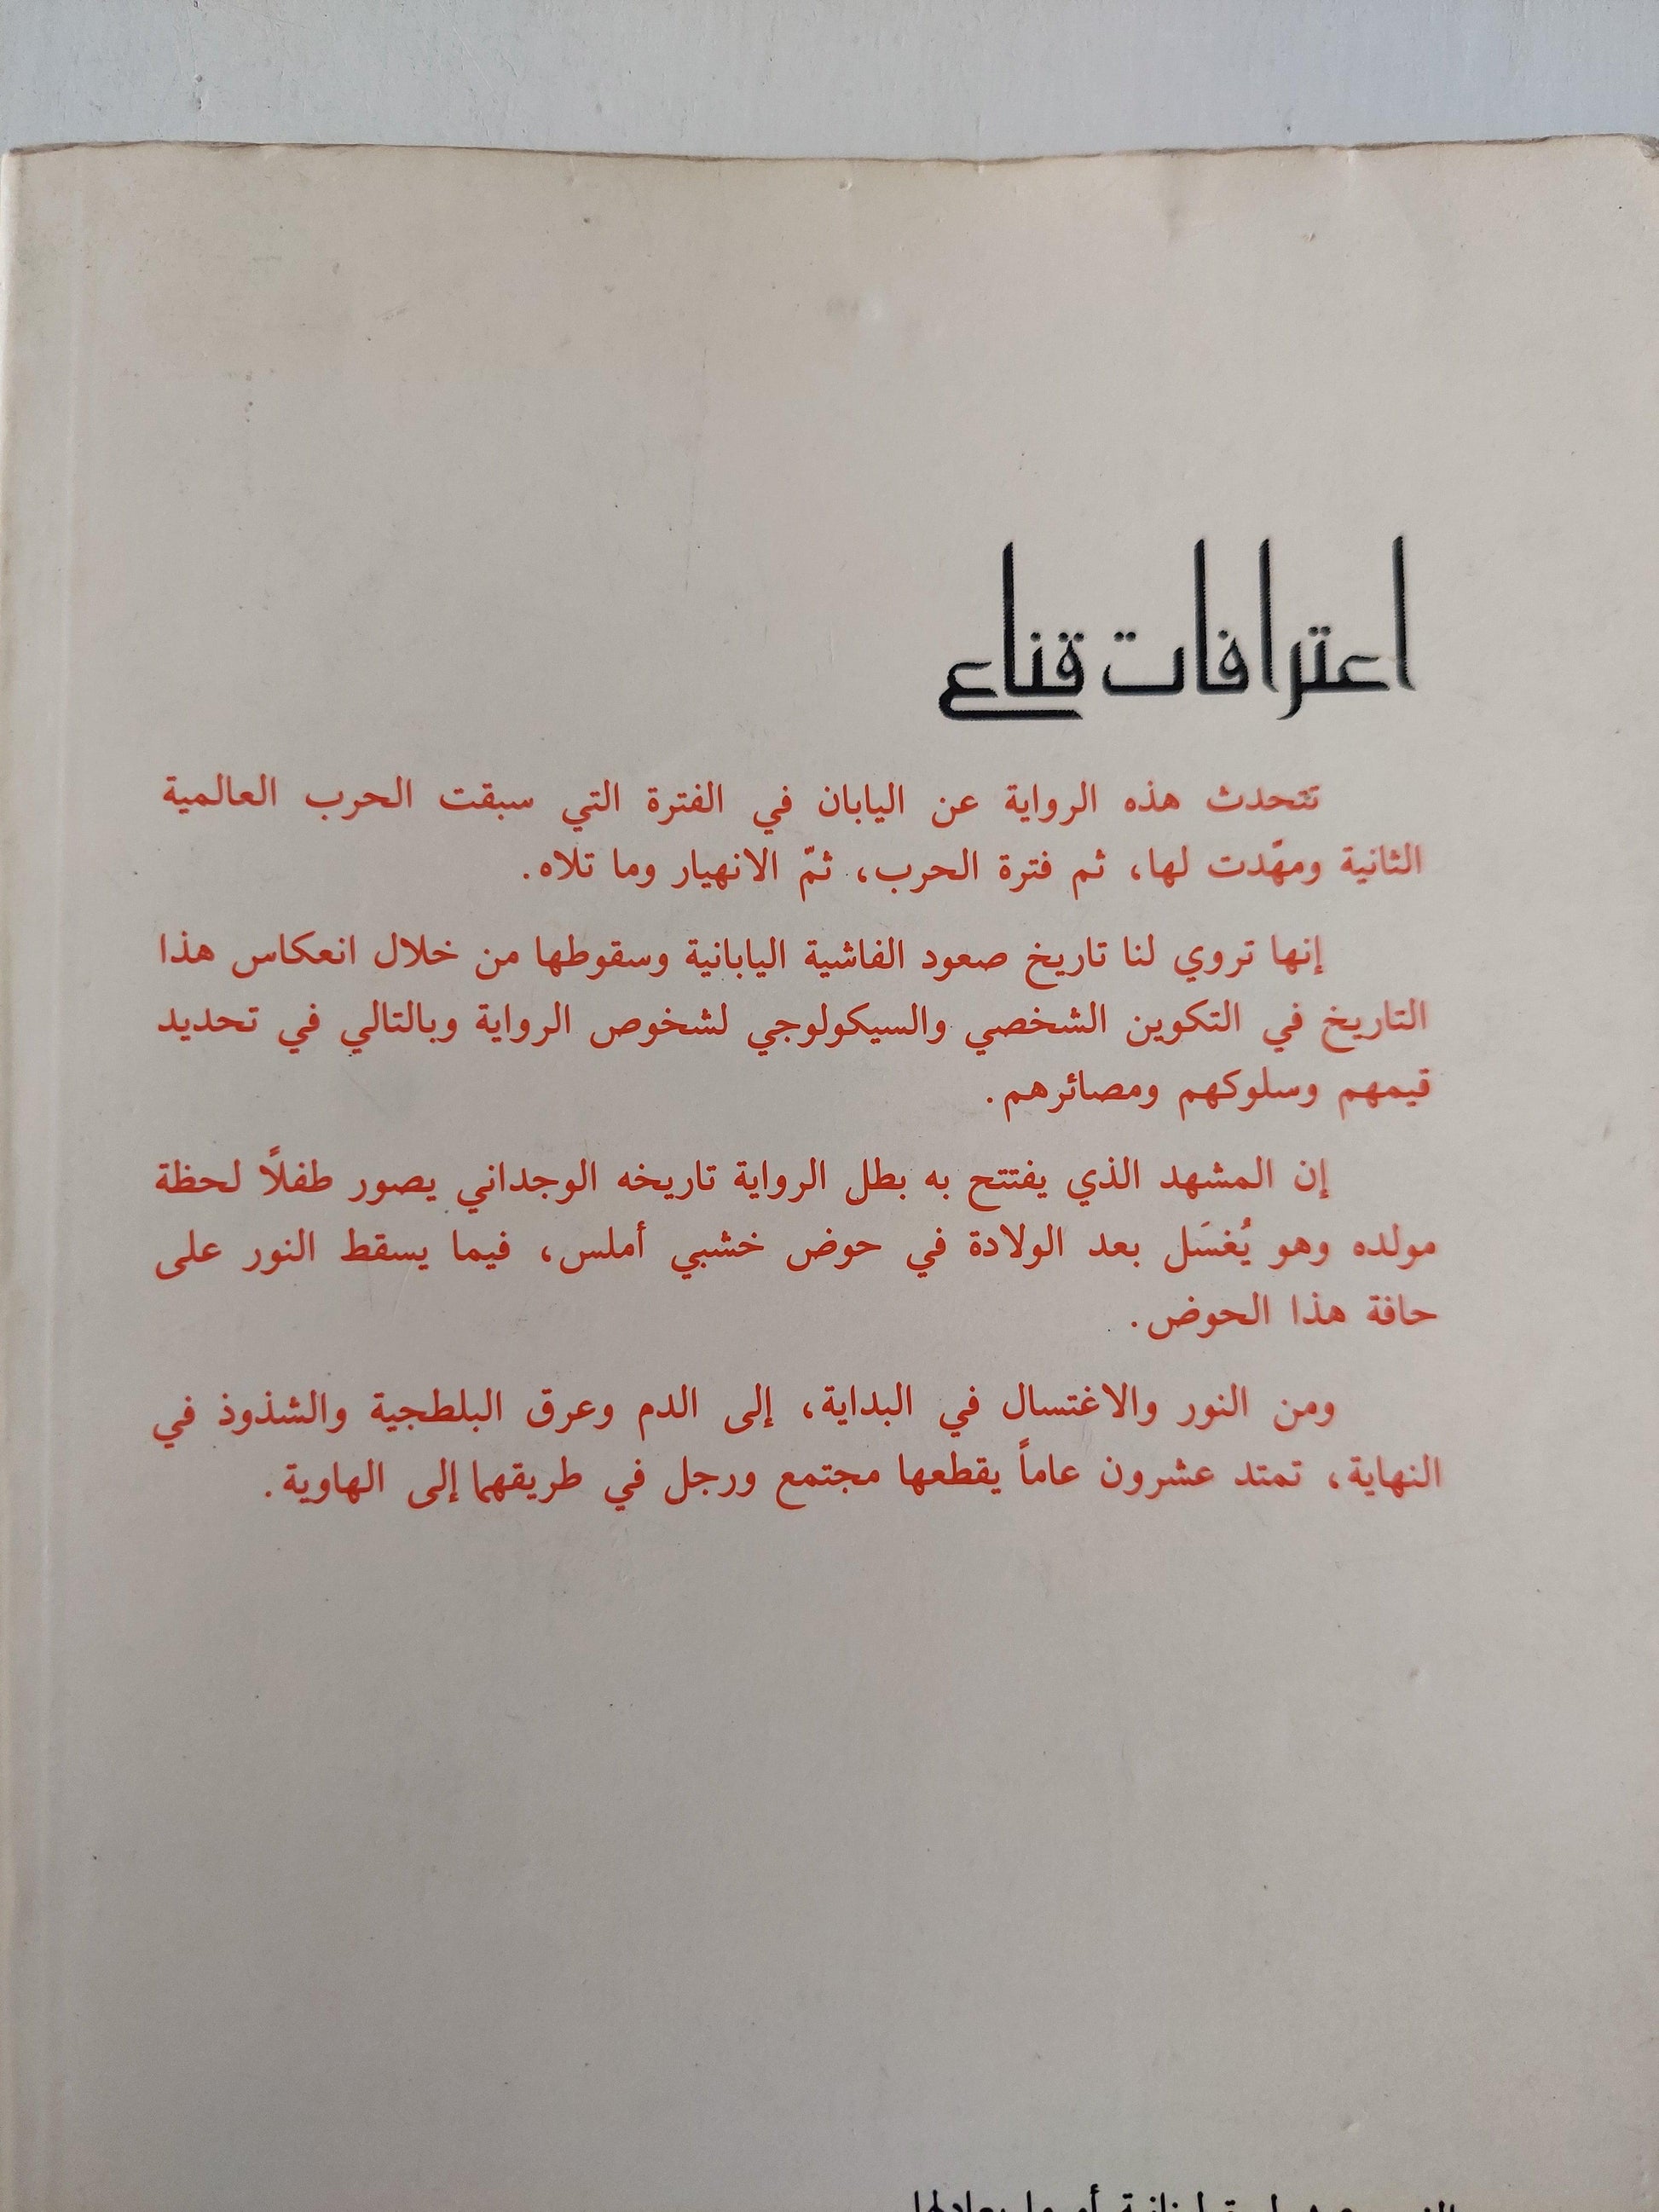 اعترافات قناع
تتحدث هذه الرواية عن اليابان في الفترة التي سبقت الحرب العالمية
الثانية ومهّدت لها، ثم فترة الحرب، ثمّ الانهيار وما تلاه.
إنها تروي لنا تاريخ صعود الفاشية اليابانية وسقوطها من خلال انعكاس هذا
التاريخ في التكوين الشخصي والسيكولوجي لشخوص الرواية وبالتالي في تحديد
قيمهم وسلوكهم ومصائرهم.
إن المشهد الذي يفتتح به بطل الرواية تاريخه الوجداني يصور طفلاً لحظة
مولده وهو يُغسَل بعد الولادة في حوض خشبي أملس، فيما يسقط النور على
حافة هذا الحوض.
ومن النور والاغتسال في البداية، إلى الدم وعرق البلطجية والشذوذ في
النهاية، تمتد عشرون عاماً يقطعها مجتمع ورجل في طريقهما إلى الهاوية.